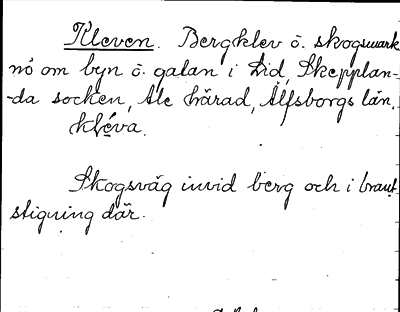 Kleven. Bergklev ö. skogsmark
nö om byn ö. gatan i Lid, Skepplan-
-da socken, Ale härad, Älfsborgs län.
kléva.
Skogsväg invid berg och i brant
stigning där.